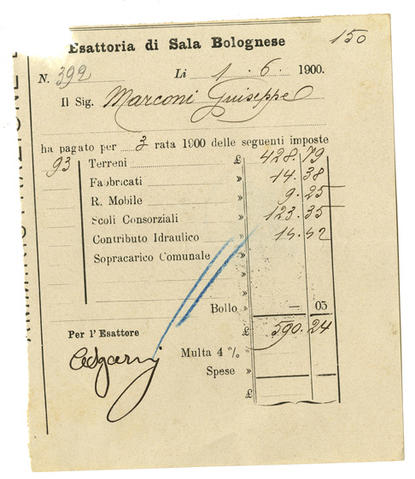 150
Esattoria di Sala Bolognese
N. 392 Li 1. 6. 1900.
Il Sig. Marconi Guiseppe
ha pagato per 3 rata 1900 delle seguenti imposte
93 Terreni £ 428.79
Fabbricati » 14.38
R. Mobile » 9.25
Scoli Consorziali » 123.35
Contributo Idraulico » 14.42
Sopracarico Comunale »
Bollo » — 05
Per l'Esattore £ 590.24
Multa 4 % »
Spese »